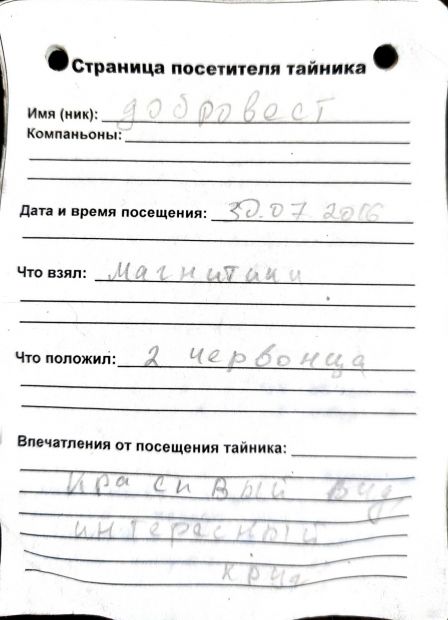 Страница посетителя тайника
Имя (ник): добровест
Компаньоны:
Дата и время посещения: 30.07 2016
Что взял: Магнитики
Что положил: 2 червонца
Впечатления от посещения тайника:
Красивый вид,
интересный
круг